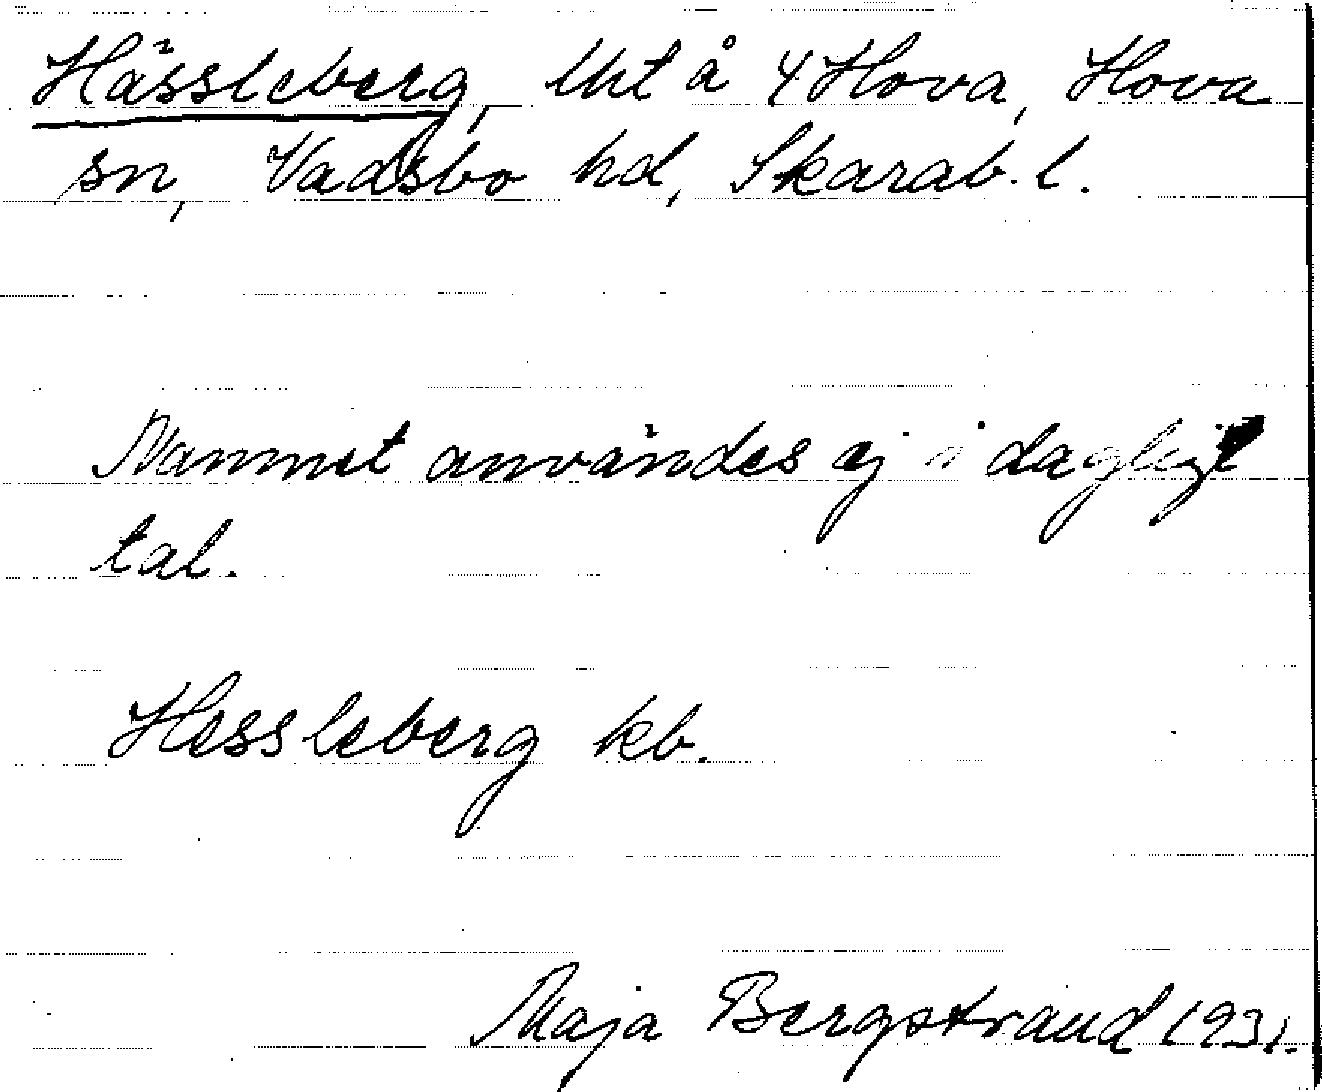 Hässleberg, lht å 4 Hova, Hova
sn, Vadsbo hd, Skarab. l.
Namnet användes ej i dagligt
tal.
Hessleberg kb.
Maja Bergstrand 1931.